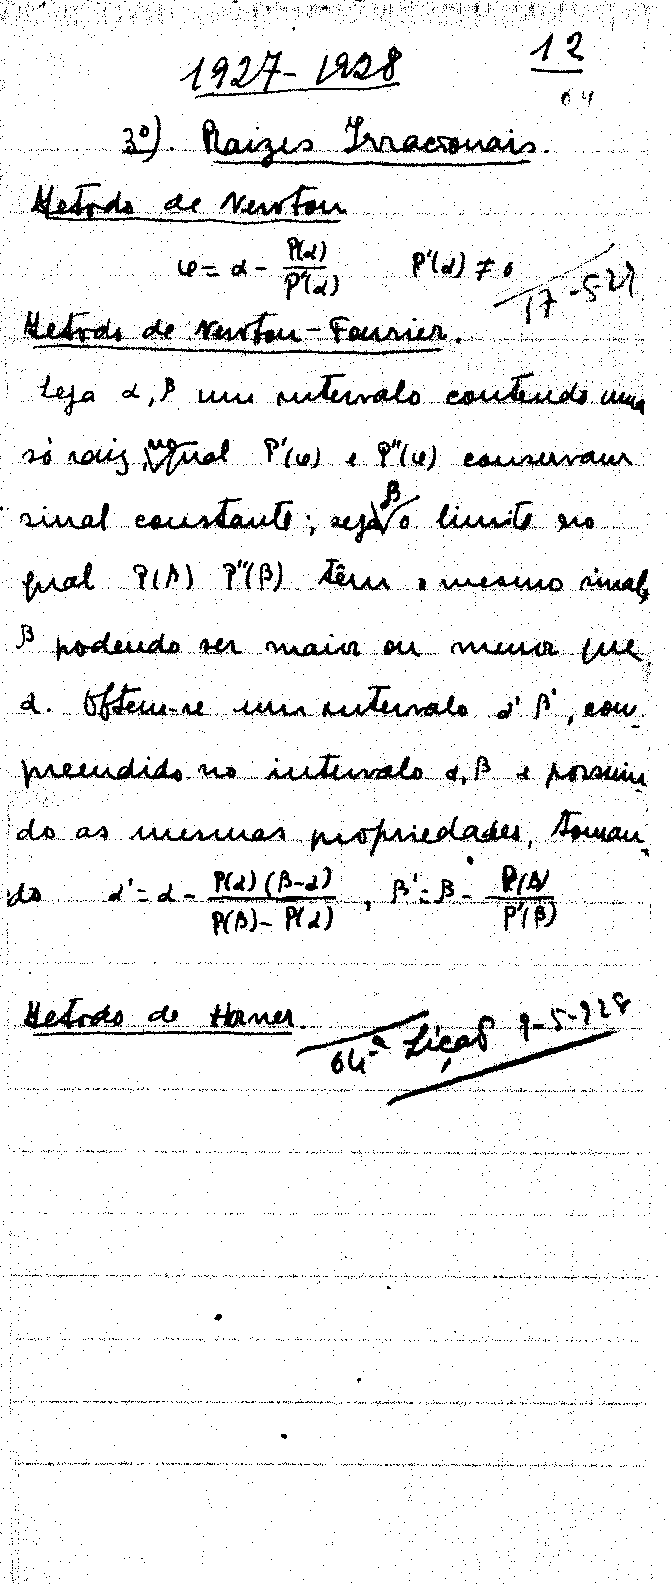 1927-1928
12
64
3º). Raizes Irracionais.
Metodo de Newton
φ = α - P(α)/P'(α)   P'(α) ≠ 0
17-5-27
Metodo de Newton-Fourier.
Seja α, β um intervalo contendo uma
só raiz, no qual P'(φ) e P''(φ) conservam
sinal constante; seja β o limite no
qual P(β) P''(β) têm o mesmo sinal,
β podendo ser maior ou menor que
α. Obtem-se um intervalo α' β', com-
preendido no intervalo α, β e possuin-
do as mesmas propriedades, toman-
do α' = α - P(α)(β-α)/P(β)-P(α), β' = β - P(β)/P'(β)
Metodo de Horner.
64ª Lição 9-5-928